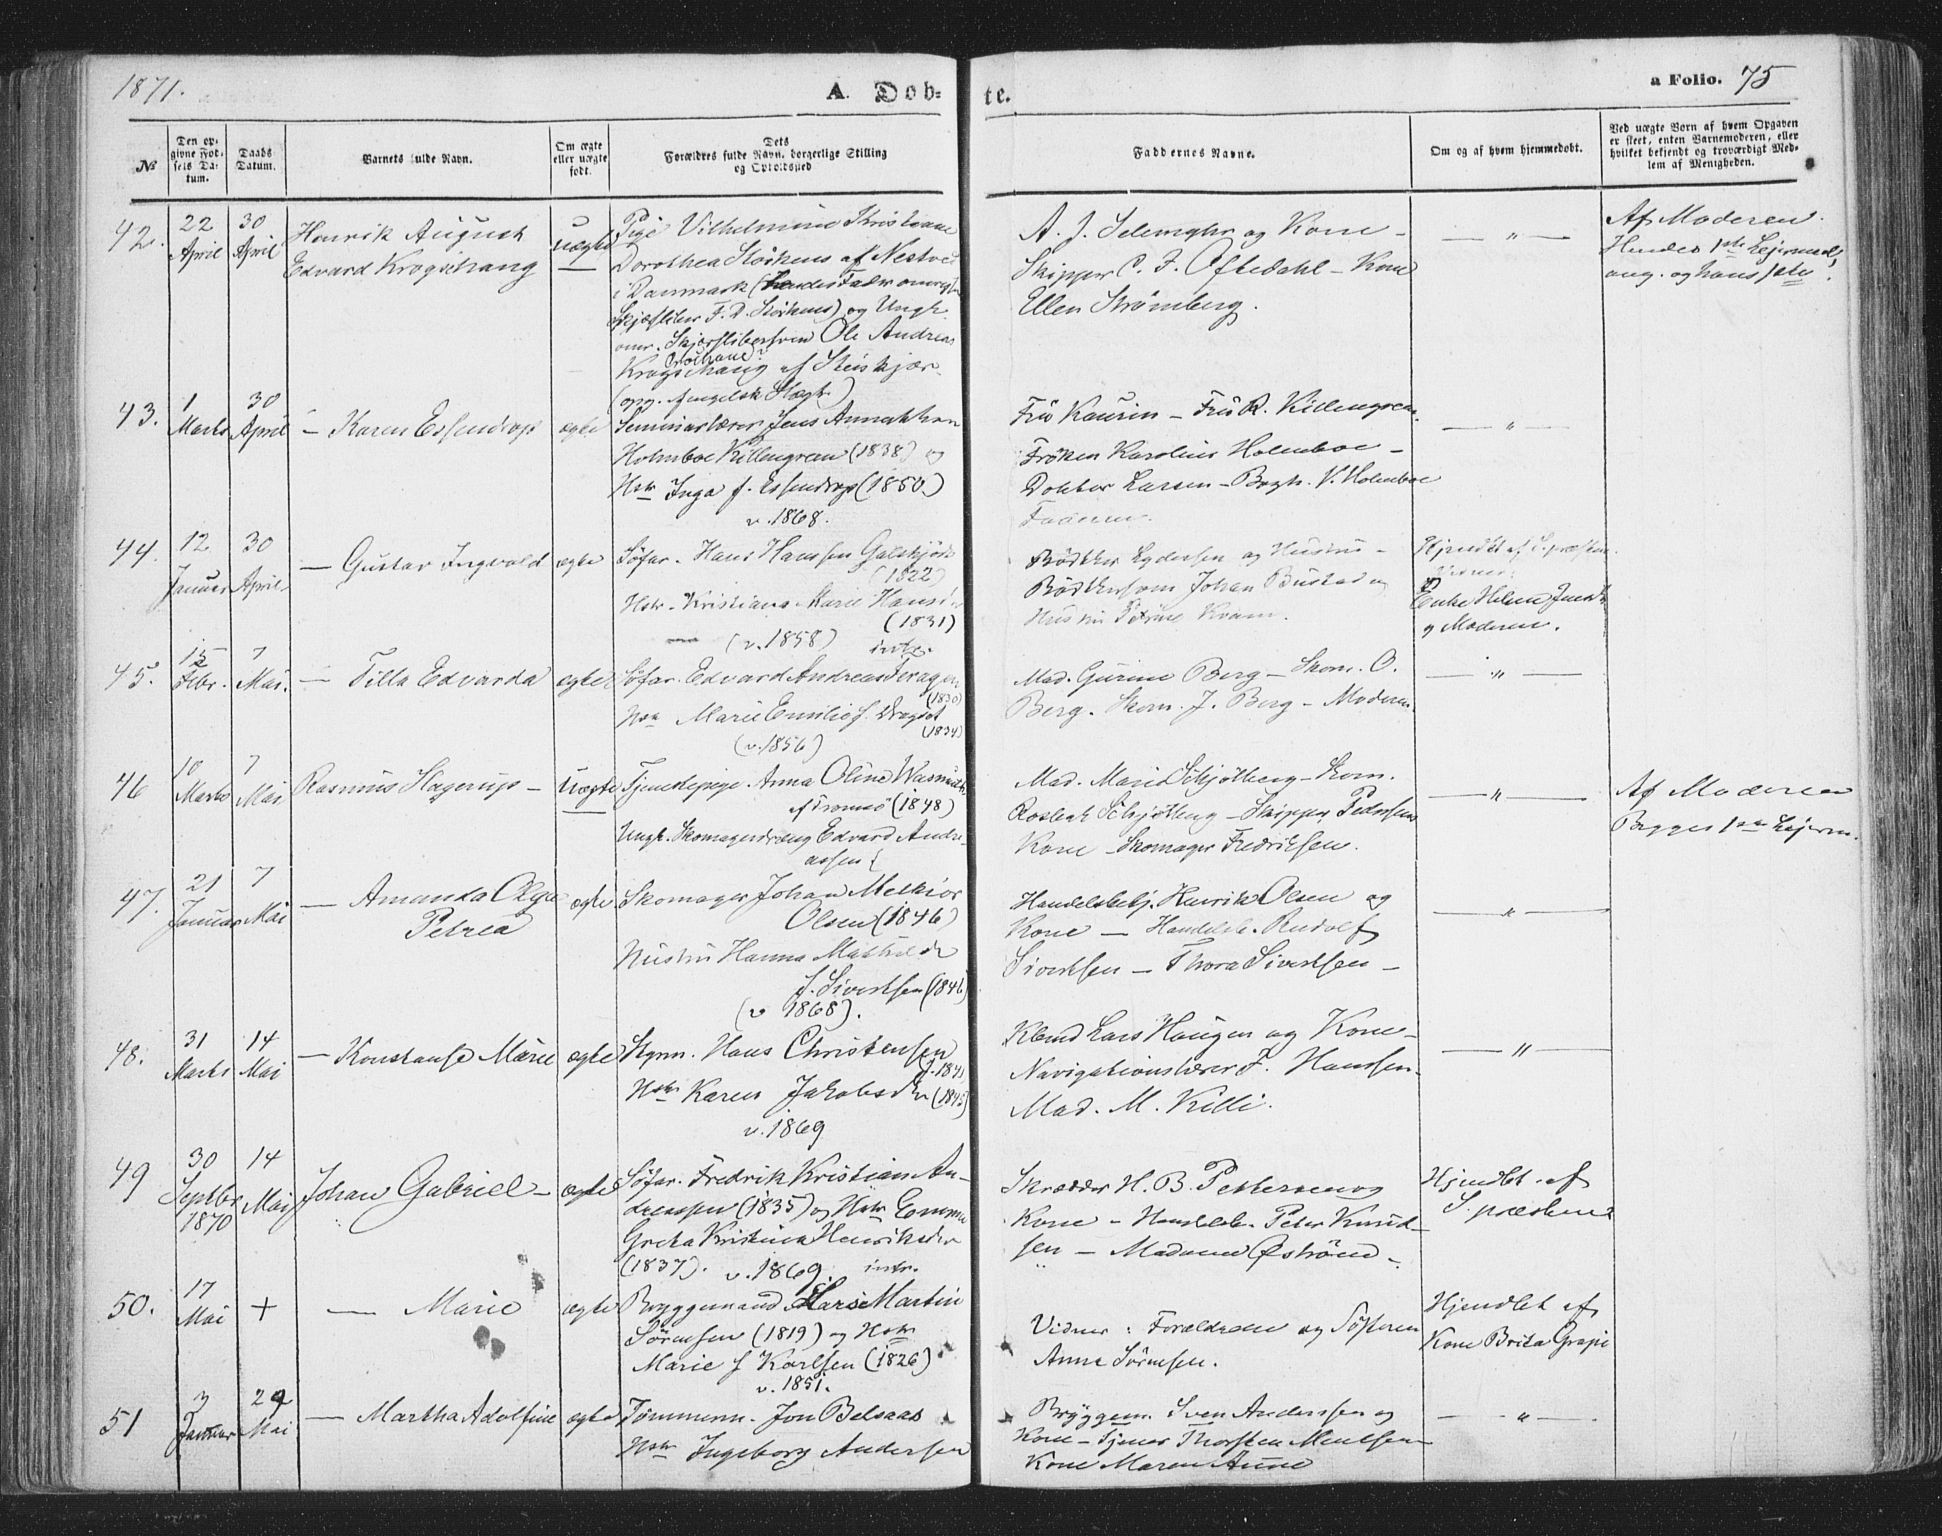 1871.
A. Døbte.
a Folio. 75
№
Den opgivne Fødsels Datum.
Daabs Datum.
Barnets fulde Navn.
Om ægte eller uægte født.
Dets Forældres fulde Navn, borgerlige Stilling og Opholdssted
Faddernes Navne.
Om og af hvem hjemmedøbt.
Ved uægte Børn af hvem Opgaven er skeet, enten Barnemoderen, eller hvilket bekjendt og troværdigt Medlem af Menigheden.
42. 22 April 30 April
Henrik August
Edvard Krogschang
uægte
Pige Vilhelmine Kristiane
Dorothea Störkens af Nestved
i Danmark (hendes Fader omreis.
Skjærsliber F. D. Störkens) og Ungk.
omr. Skjærslibersven Ole Andreas
Krogschang af Stenkjær
(opg. af engelsk Slægt)
A. J. og Kone –
Skipper C. F. Oftedahl – Kone
Ellen Strømberg.
— " —
Af Moderen.
Hendes 1ste Lejermaal,
ang. og hans 1ste.
43. 1 Marts 30 April
— Karen Essendrop
ægte
Seminarlærer Jens
Holmboe Killengreen (1838) og
Hstr Inga f. Essendrop (1850)
v. 1868.
Frü Kaurin – Frü R. Killengreen
Fröken Karoline Holmboe –
Doktor Larsen – Bogh. V. Holmboe
Faderen.
— " —
44. 12 Januar 30 April
— Gustav Ingvald
ægte
Söfar. Hans Hanssen
(1822)
Hstr. Kristiana Marie
(1831)
(v. 1858) indtr.
Bödker Lydersen og Hustru –
Bödkersven Johan Bustad og
Hustru Petrine Kvam.
Hjemdöbt af S.præsten
Enke Helene
og Moderen.
45. 15 Febr. 7 Mai.
— Tilla Edvarda
ægte
Söfar. Edvard Andreas Feragen
(1830)
Hstr Marie Emilie f. Dragset
(1834)
(v. 1856)
Mad. Gurine Berg – Skom. O.
Berg. Skom. J. Berg – Moderen
— " —
46 10 Marts 7 Mai
Rasmus Hagerup –
Uægte
Tjenestepige Anna Oline Wasmuth
af Tromsö (1848)
Ungk. Skomagerdreng Edvard Andreassen
Mad. Marie Schjötberg – Skom.
Schjötberg – Skipper Pedersens
Kone – Skomager Fredriksen.
— " —
Af Moderen
Begges 1ste Lejerm.
47. 21 Januar 7 Mai
— Amanda Olga
Petrea
ægte
Skomager Johan Melkior
Olsen (1846)
Hustru Hanna Mathilde
f. Sivertsen (1846)
(v 1868).
Handelsbetj. Henrik Olsen og
Kone — Handelsb. Rudolf
Sivertsen – Thora Sivertsen –
— " —
48. 31 Marts 14 Mai
— Konstanse Marie
ægte
Styrm. Hans Christensen
Hstr Karen Jakobsdtr (1845)
v. 1869
Klemd Lars Haugen og Kone –
Navigationslærer F. Hanssen.
Mad. M. Killi.
— " —
49 30 Septbr 1870 14 Mai
Johan Gabriel –
ægte
Söfar. Fredrik Kristian Andreassen
(1835) og Hstr Emma
Greta Kristina Henriksdtr
(1837). v. 1869. indtr.
Skrædder H. B. Pettersen og
Kone – Handelsb. Peter Knudsen
— Madame Öström –
Hjemdbt. af
S. præsten
50. 17 Mai +
— Marie
ægte
Bryggemand Lars Martin
Sörensen (1819) og Hstr
Marie f Karlsen (1826)
v. 1851.
Vidner: Forældrene og Söstren
Anne Sörensen.
Hjemdbt af
Kone Brita Grape
51 3 Januar 29 Mai
— Martha Adolfine
ægte
Tömmerm. Jon Belsaas
Hstr Ingeborg Andersen
Bryggem. Sven Anderssen og
Kone – Tjener Thorsten
Kone Maren Anne
— " —